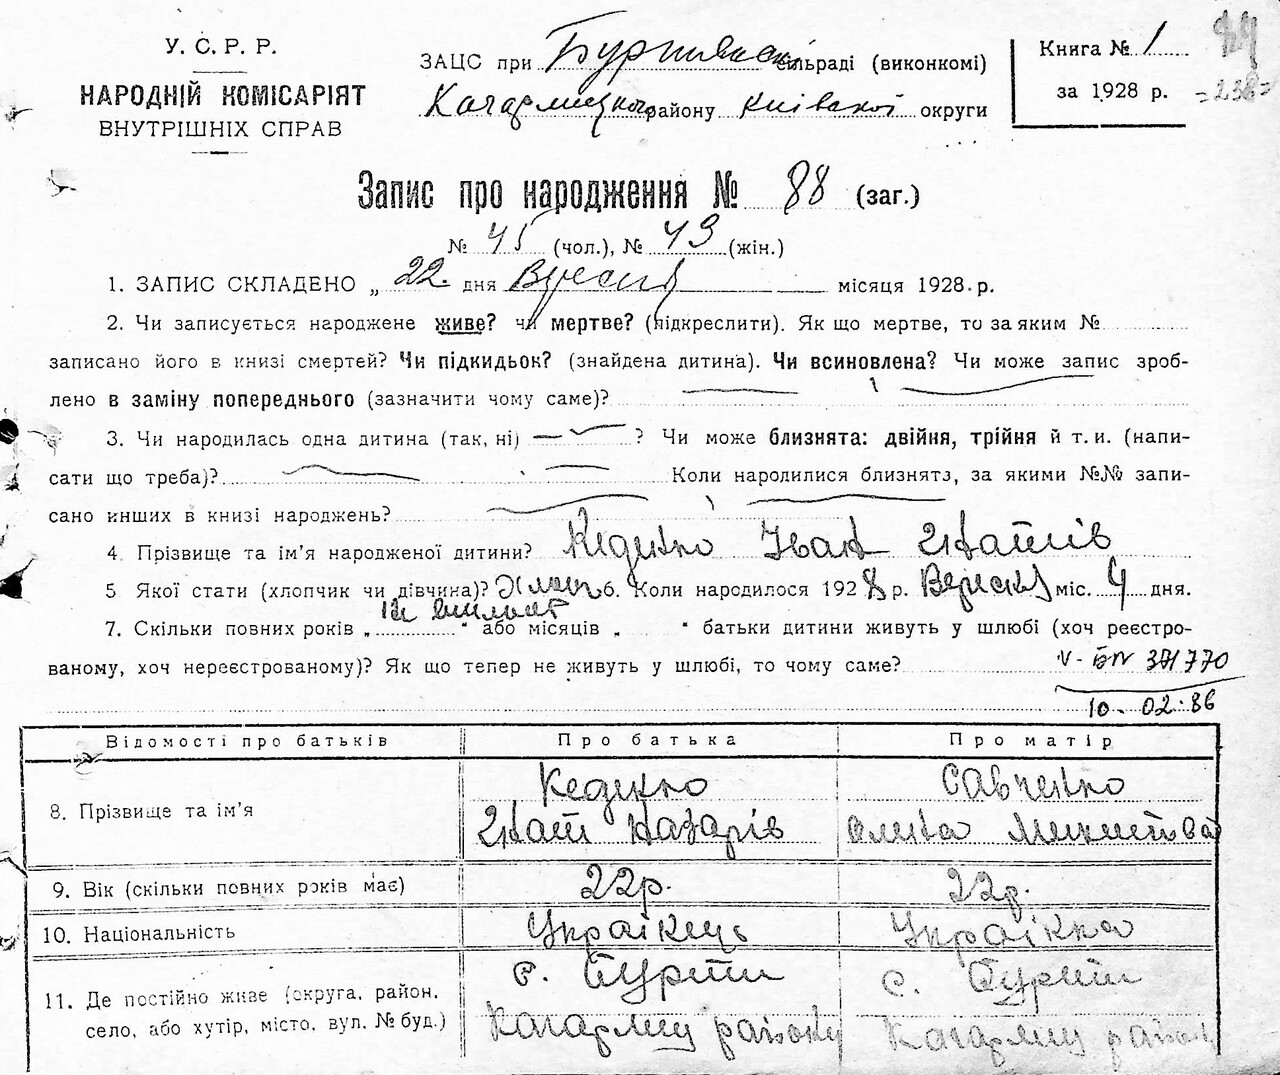 У. С. Р. Р.
НАРОДНІЙ КОМІСАРІЯТ
ВНУТРІШНІХ СПРАВ
ЗАЦС при сільраді (виконкомі)
Кагарлицького району Київської округи
Книга № 1
за 1928 р.
=238=
Запис про народження № 88 (заг.)
№ 45 (чол.), № 43 (жін.)
1. ЗАПИС СКЛАДЕНО „ 22 дня Вересня місяця 1928 р.
2. Чи записується народжене живе? чи мертве? (підкреслити). Як що мертве, то за яким №
записано його в книзі смертей? Чи підкидьок? (знайдена дитина). Чи всиновлена? Чи може запис зроб-
лено в заміну попереднього (зазначити чому саме)?
3. Чи народилась одна дитина (так, ні) ? Чи може близнята: двійня, трійня й т. и. (напи-
сати що треба)? Коли народилися близнята, за якими №№ запи-
сано инших в книзі народжень?
4. Прізвище та ім'я народженої дитини? Кеденко Іван Гнатів
5 Якої стати (хлопчик чи дівчина)? Хлоп. 6. Коли народилося 1928 р. Вересня міс. 4 дня.
7. Скільки повних років „ " або місяців „ " батьки дитини живуть у шлюбі (хоч реєстро-
ваному, хоч нереєстрованому)? Як що тепер не живуть у шлюбі, то чому саме?
10-02.86
Відомості про батьків Про батька Про матір
8. Прізвище та ім'я Кеденко Гнат Назарів Савченко Микитова
9. Вік (скільки повних років має) 22р. 22р.
10. Національність Українець Українка
11. Де постійно живе (округа, район, село, або хутір, місто, вул. № буд.) с. Бурти Кагарлиц району с. Бурти Кагарлиц району